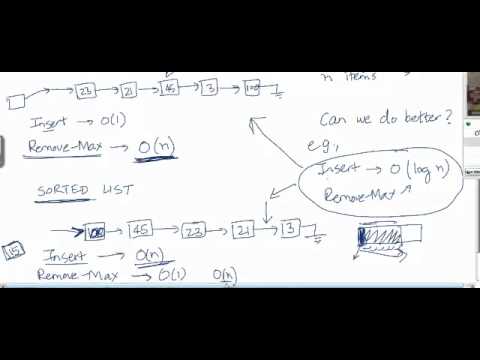 23 21 45 3 100
n items
Insert → O(1)
Can we do better?
Remove-Max → O(n)
e.g.,
Insert → O(log n)
Remove-Max
SORTED LIST
100 45 23 21 3
115
Insert → O(n)
Remove-Max → O(1) O(n)